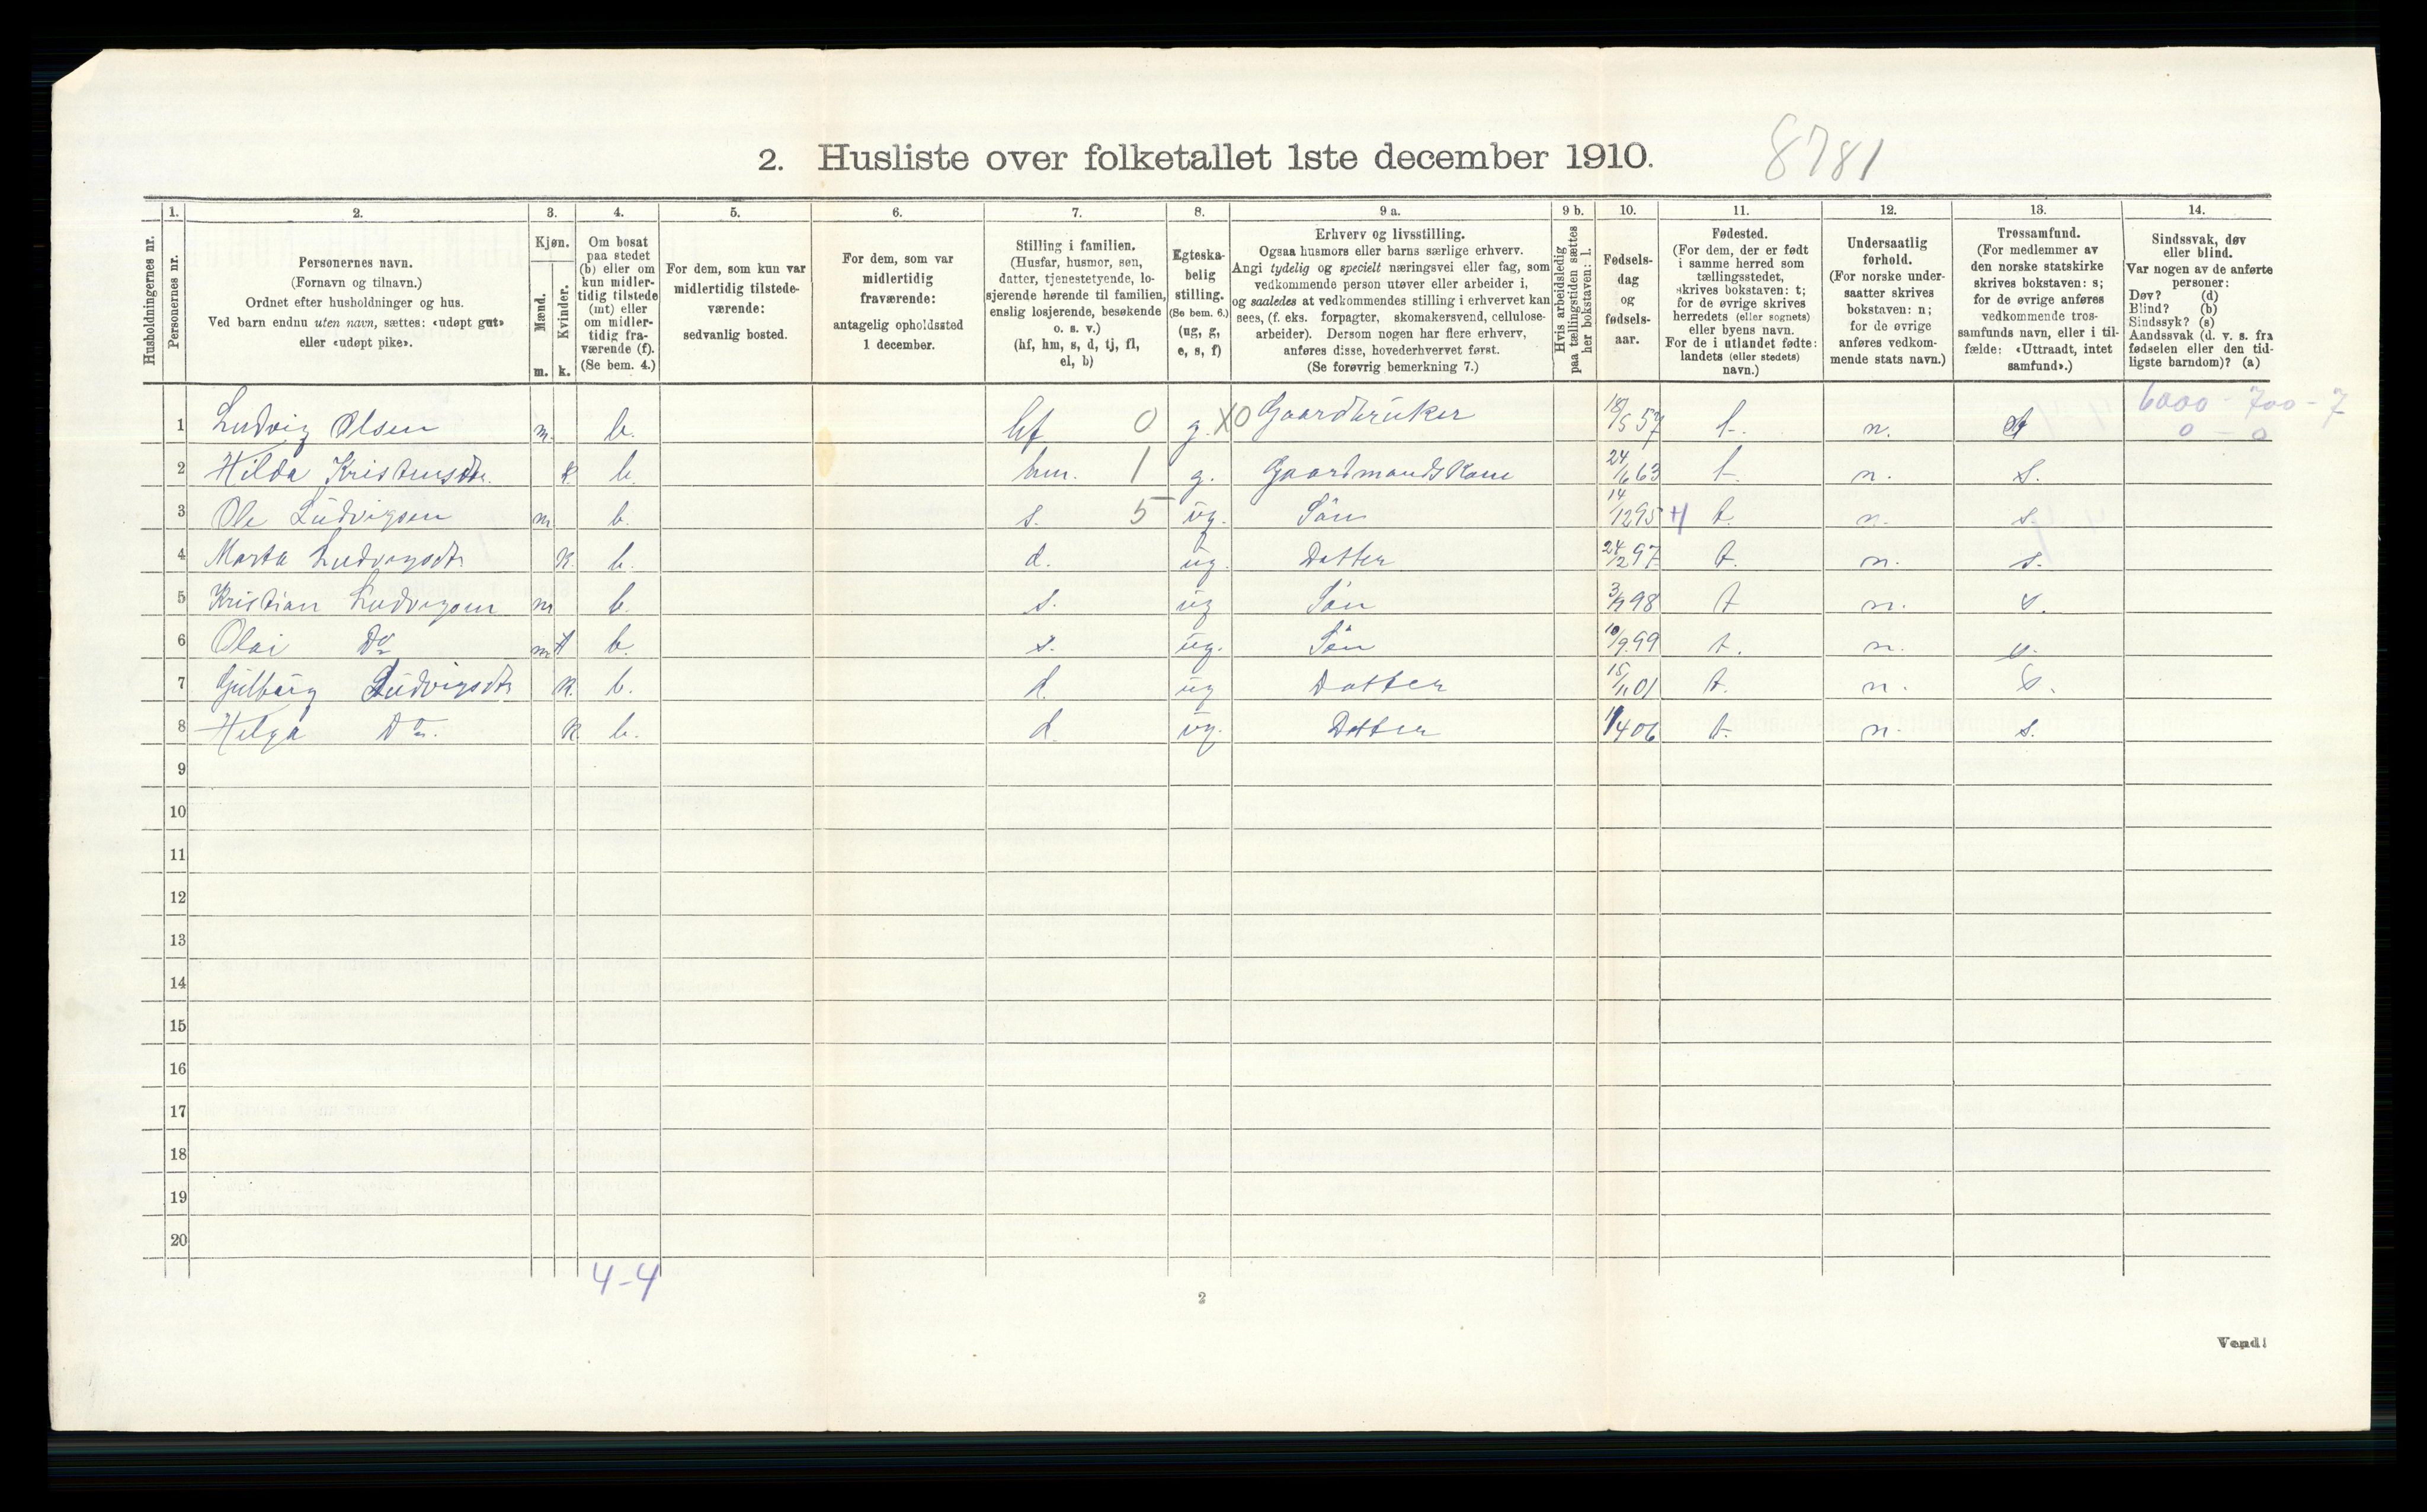 2. Husliste over folketallet 1ste december 1910. 8781
Husholdningernes nr.
1. Personernes nr.
2. Personernes navn. (Fornavn og tilnavn.) Ordnet efter husholdninger og hus. Ved barn endnu uten navn, sættes: «udøpt gut» eller «udøpt pike».
3. Kjøn. Mænd. m. Kvinder. k.
4. Om bosat paa stedet (b) eller om kun midlertidig tilstede (mt) eller om midlertidig fraværende (f). (Se bem. 4.)
5. For dem, som kun var midlertidig tilstedeværende: sedvanlig bosted.
6. For dem, som var midlertidig fraværende: antagelig opholdssted 1 december.
7. Stilling i familien. (Husfar, husmor, søn, datter, tjenestetyende, losjerende hørende til familien, enslig losjerende, besøkende o. s. v.) (hf, hm, s, d, tj, fl, el, b)
8. Egteskabelig stilling. (Se bem. 6.) (ug, g, e, s, f)
9 a. Erhverv og livsstilling. Ogsaa husmors eller barns særlige erhverv. Angi tydelig og specielt næringsvei eller fag, som vedkommende person utøver eller arbeider i, og saaledes at vedkommendes stilling i erhvervet kan sees, (f. eks. forpagter, skomakersvend, cellulosearbeider). Dersom nogen har flere erhverv, anføres disse, hovederhvervet først. (Se forøvrig bemerkning 7.)
9 b. Hvis arbeidsledig paa tællingstiden sættes her bokstaven: l.
10. Fødselsdag og fødselsaar.
11. Fødested. (For dem, der er født i samme herred som tællingsstedet, skrives bokstaven: t; for de øvrige skrives herredets (eller sognets) eller byens navn. For de i utlandet fødte: landets (eller stedets) navn.)
12. Undersaatlig forhold. (For norske undersaatter skrives bokstaven: n; for de øvrige anføres vedkommende stats navn.)
13. Trossamfund. (For medlemmer av den norske statskirke skrives bokstaven: s; for de øvrige anføres vedkommende trossamfunds navn, eller i tilfælde: «Uttraadt, intet samfund».)
14. Sindssvak, døv eller blind. Var nogen av de anførte personer: Døv? (d) Blind? (b) Sindssyk? (s) Aandssvak (d. v. s. fra fødselen eller den tidligste barndom)? (a)
6000 - 700 - 7
1 Ludvig Olsen m. b. hf 0 g. X0 Gaardbruker 18/5 57 t. n. s 0 - 0
2 Hilda Kristensdtr. k. b. hm. 1 g. Gaardmandskone 24/6 63 t. n. s.
3 Ole Ludvigsen m b. s. 5 ug. Sön 14/12 95 t. n. s.
4 Marta Ludvigsdtr k. b. d. ug. Datter 24/2 97 t. n. s.
5 Kristian Ludvigsen m b. s. ug Sön 3/9 98 t n. s.
6 Olai Do m b. s. ug. Sön 10/9 99 t. n. s.
7 Gulborg Ludvigsdtr k. b. d. ug Datter 15/11 01 t. n. s.
8 Helga Do. k b. d. ug. Datter 1/4 06 t. n. s.
9
10
11
12
13
14
15
16
17
18
19
20
4-4
2
Vend!